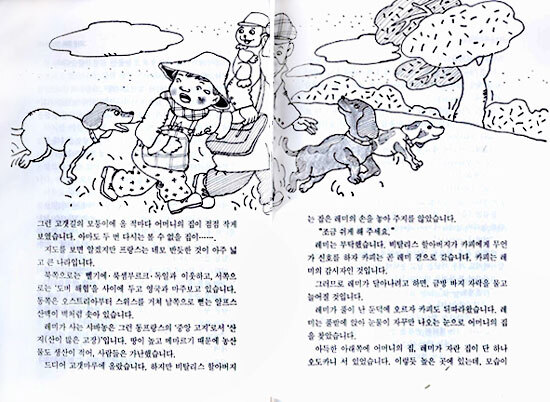 그런 고갯길의 모퉁이에 올 적마다 어머니의 집이 점점 작게
보였습니다. 아마도 두 번 다시는 볼 수 없을 집이…….
지도를 보면 알겠지만 프랑스는 네모 반듯한 것이 아주 넓
고 큰 나라입니다.
북쪽으로는 벨기에·룩셈부르크·독일과 이웃하고, 서쪽으
로는 '도버 해협'을 사이에 두고 영국과 마주보고 있습니다.
동쪽은 오스트리아부터 스위스를 거쳐 남쪽으로 뻗는 알프스
산맥이 벽처럼 솟아 있습니다.
레미가 사는 샤바농은 그런 동프랑스의 '중앙 고지'로서 '산
지(산이 많은 고장)'입니다. 땅이 높고 메마르기 때문에 농산
물도 생산이 적어, 사람들은 가난했습니다.
드디어 고갯마루에 올랐습니다. 하지만 비탈리스 할아버지
는 잡은 레미의 손을 놓아 주지를 않았습니다.
"조금 쉬게 해 주세요."
레미는 부탁했습니다. 비탈리스 할아버지가 카피에게 무언
가 신호를 하자 카피는 곧 레미 곁으로 갔습니다. 카피는 레
미의 감시자인 것입니다.
그러므로 레미가 달아나려고 하면, 금방 바지 자락을 물고
늘어질 것입니다.
레미가 풀이 난 둔덕에 오르자 카피도 뒤따라왔습니다. 레
미는 풀밭에 앉아 눈물이 자꾸만 나오는 눈으로 어머니의 집
을 찾았습니다.
아득한 아래쪽에 어머니의 집, 레미가 자란 집이 단 하나
오도카니 서 있었습니다. 이렇듯 높은 곳에 있는데, 모습이